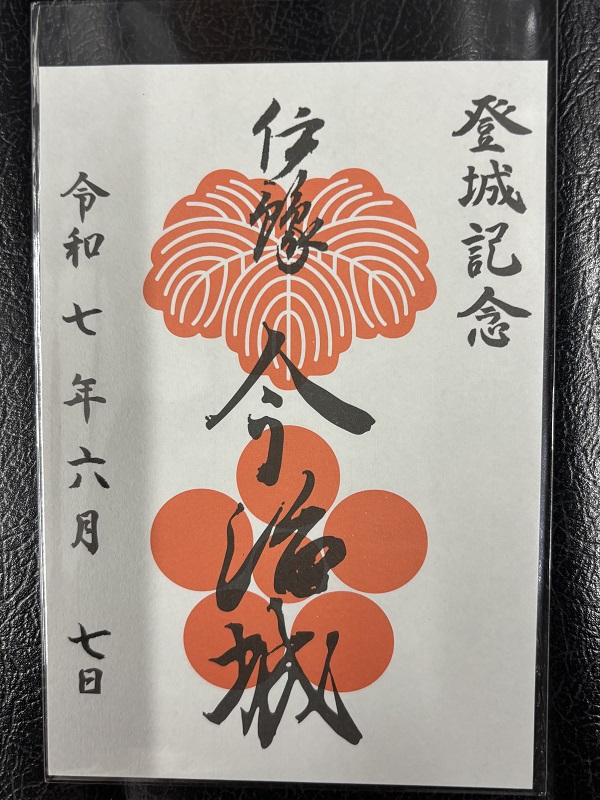 登城記念
伊豫
今治城
令和七年六月七日